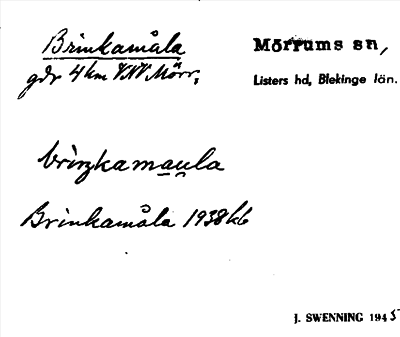 Brinkamåla
Mörrums sn,
gdr 4 km VNV Mörr.
Listers hd, Blekinge län.
brìŋkamau̯la
Brinkamåla 1938 kb
J. SWENNING 1945